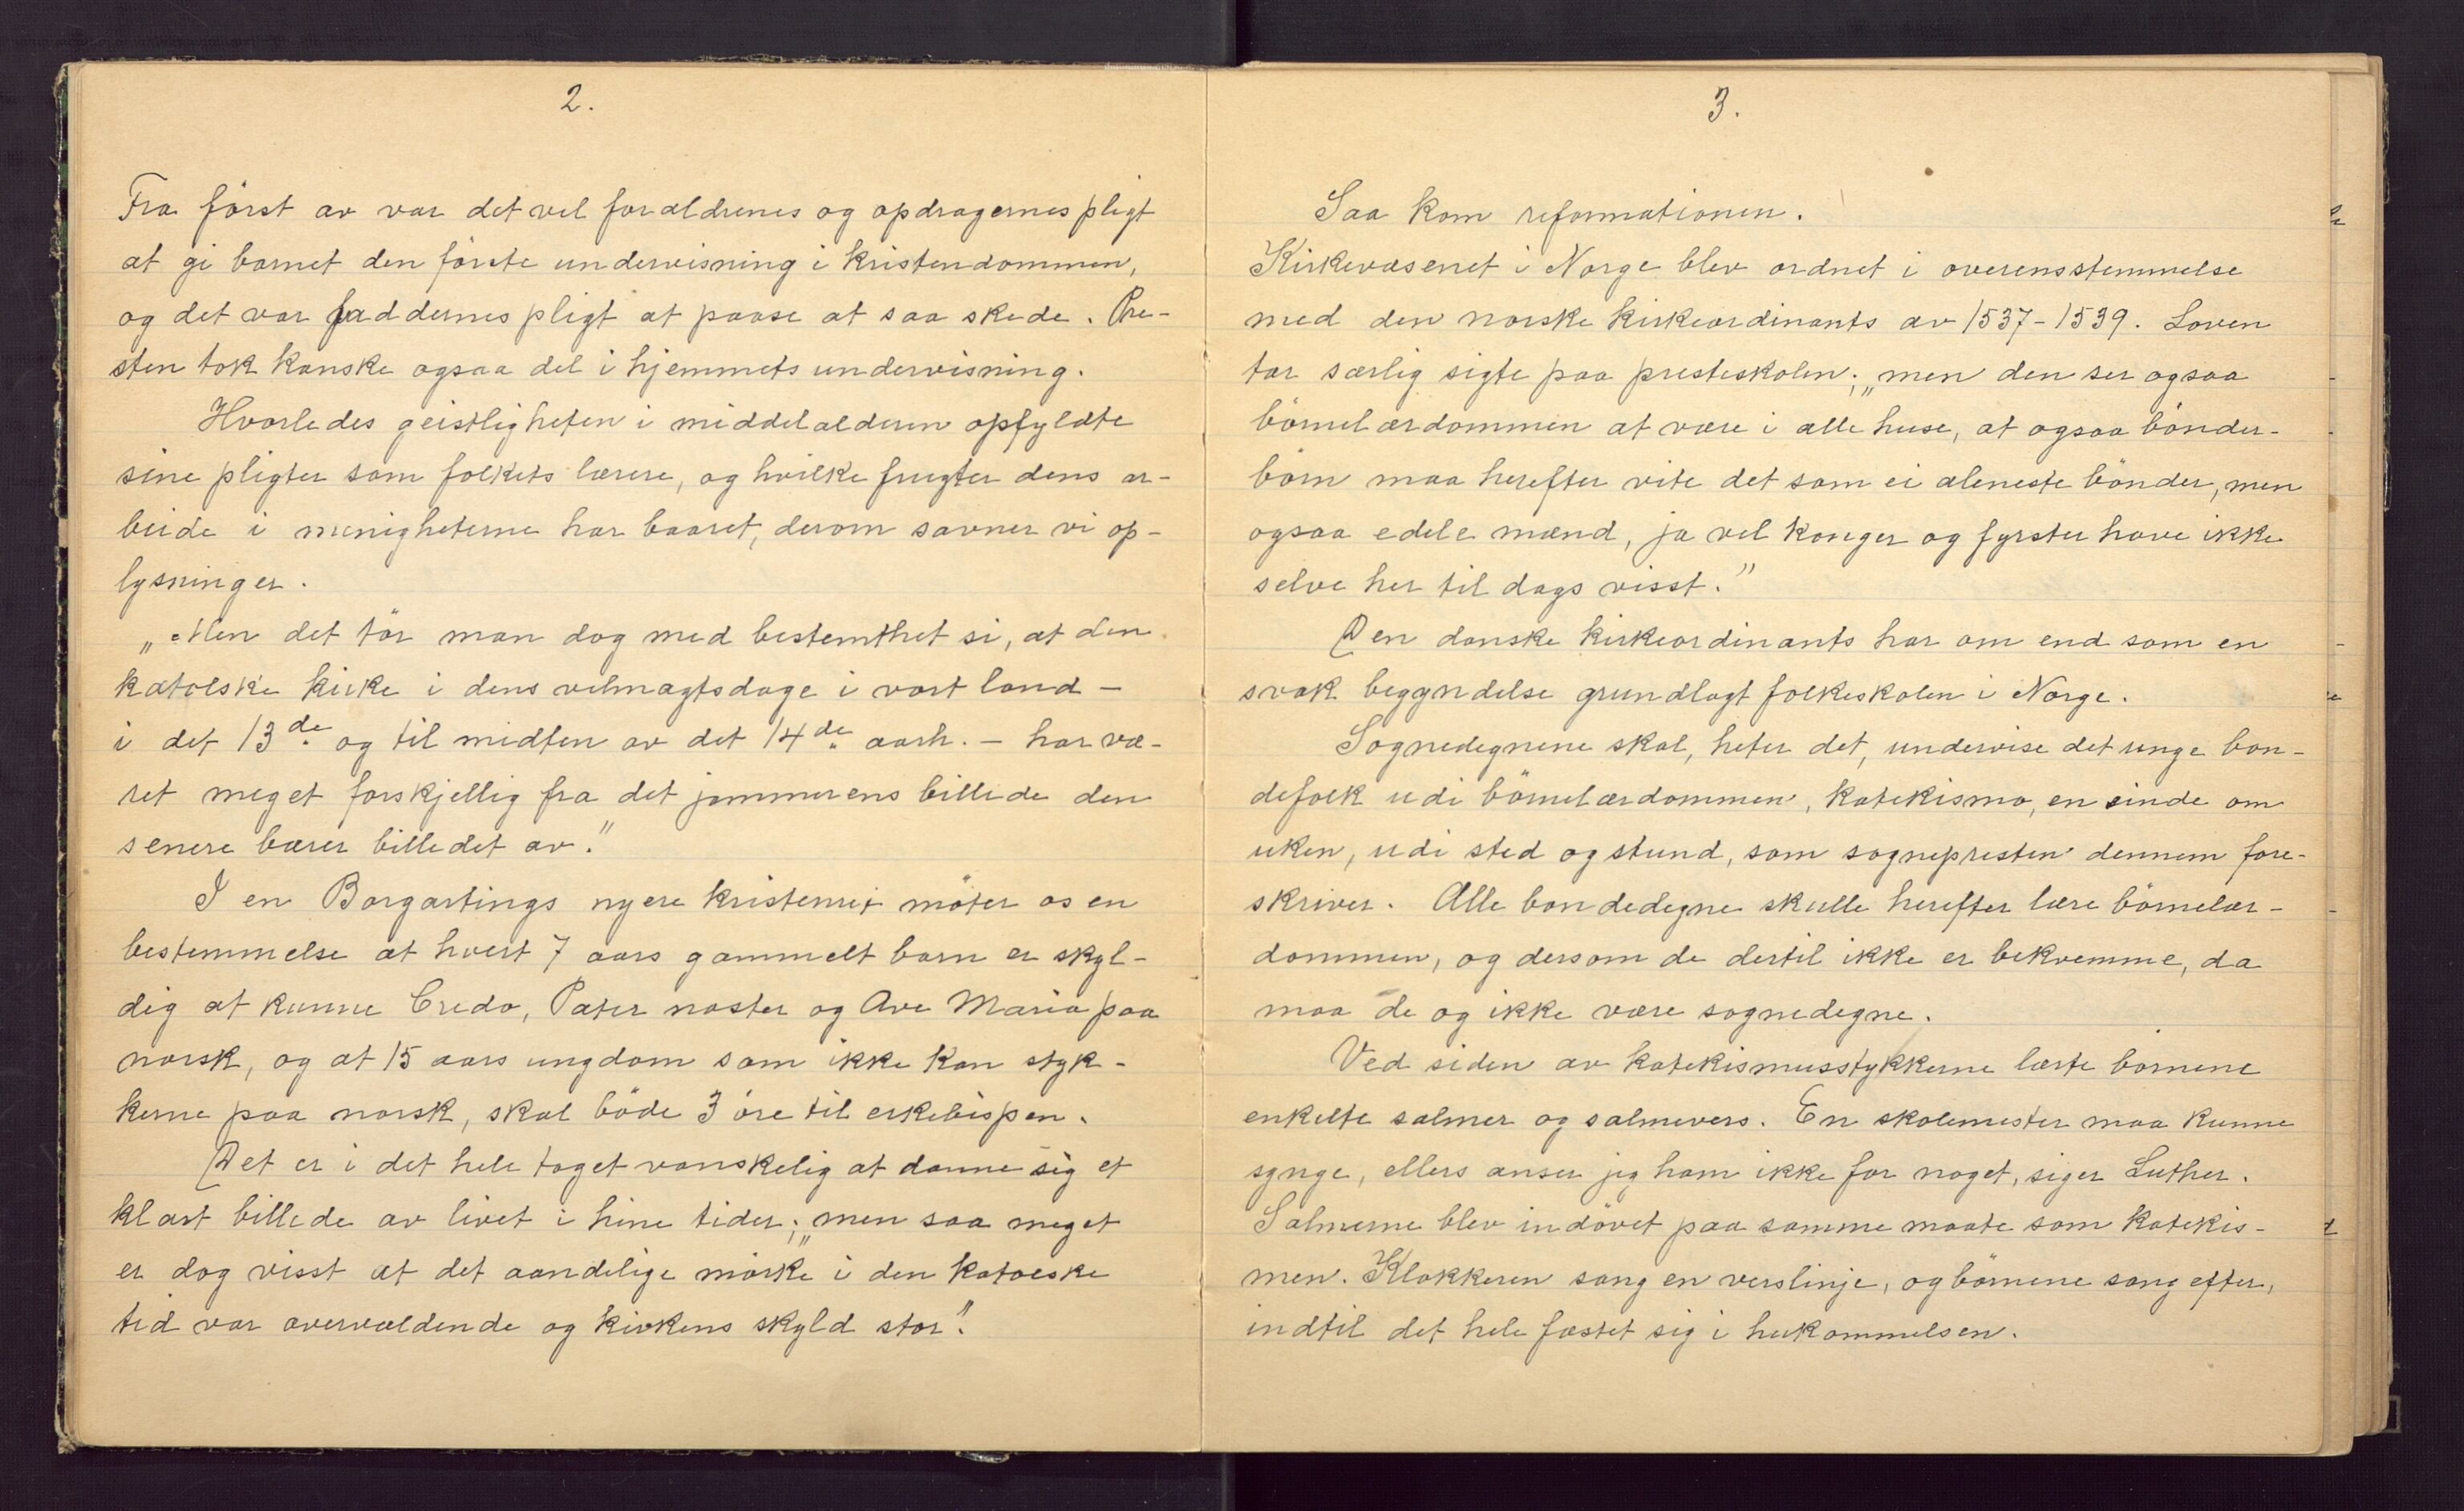 2.
Fra först av var det vel forældrenes og opdragernes pligt
at gi barnet den förste undervisning i kristendommen,
og det var faddernes pligt at paase at saa skede. Pre-
sten tok kanske ogsaa del i hjemmets undervisning.
Hvorledes geistligheten i middelalderen opfyldte
sine pligter som folkets lærere, og hvilke frugter dens ar-
beide i menigheterne har baaret, derom savner vi op-
lysninger.
„Men det tör man dog med bestemthet si, at den
katolske kirke i dens velmagtsdage i vort land –
i det 13de og til midten av det 14de aarh. – har væ-
ret meget forskjellig fra det jammerens billede den
senere bærer billedet av."
I en Borgartings nyere kristenret möter os en
bestemmelse at hvert 7 aars gammelt barn er skyl-
dig at kunne Credo, Pater noster og Ave Maria paa
norsk, og at 15 aars ungdom som ikke kan styk-
kerne paa norsk, skal böde 3 öre til erkebispen.
Det er i det hele taget vanskelig at danne sig et
klart billede av livet i hine tider; „men saa meget
er dog visst at det aandelige mörke i den katolske
tid var overvældende og kirkens skyld stor."
3.
Saa kom reformationen.
Kirkevæsenet i Norge blev ordnet i overensstemmelse
med den norske kirkeordinants av 1537-1539. Loven
tar særlig sigte paa presteskolen; „men den ser ogsaa
börnelærdommen at være i alle huse, at ogsaa bönder-
börn maa herefter vite det som ei aleneste bönder, men
ogsaa edele mænd, ja vel konger og fyrster have ikke
selve her til dags visst."
Den danske kirkeordinants har om end som en
svak begyndelse grundlagt folkeskolen i Norge.
Sognedegnene skal, heter det, undervise det unge bon-
defolk udi börnelærdommen, katekismo, en sinde om
uken, udi sted og stund, som sognepresten dennem fore-
skriver. Alle bondedegne skulle herefter lære börnelær-
dommen, og dersom de dertil ikke er bekvemme, da
maa de og ikke være sognedegne.
Ved siden av katekismusstykkerne lærte börnene
enkelte salmer og salmevers. En skolemester maa kunne
synge, ellers anser jeg ham ikke for noget, siger Luther.
Salmerne blev indövet paa samme maate som katekis-
men. Klokkeren sang en verslinje, og börnene sang efter,
indtil det hele fæstet sig i hukommelsen.